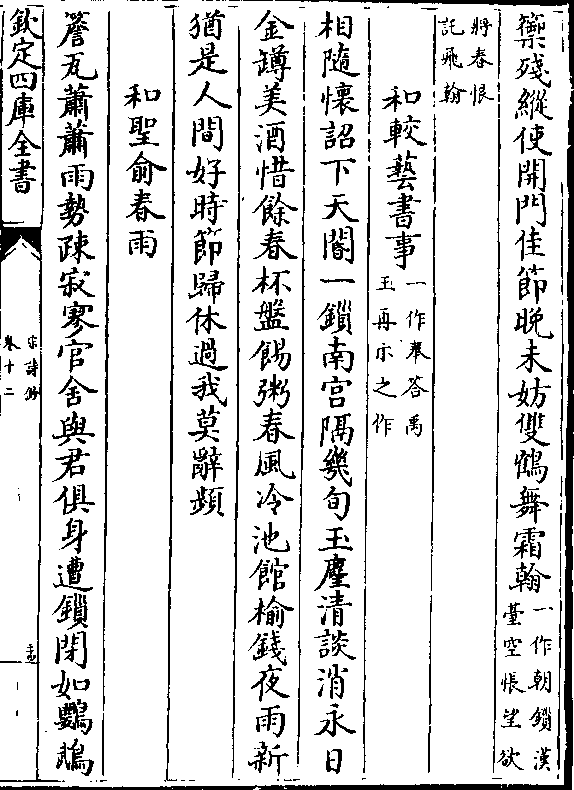 藥殘縱使開門佳節晚未妨雙鶴舞霜翰一作朝鎖漢臺空悵望欲
將春恨託飛翰
和較藝書事一作奉答禹玉再示之作
相隨懷詔下天閽一鎖南宫隔幾旬玉麈清談消永日
金罇美酒惜餘春杯盤餳粥春風冷池館榆錢夜雨新
猶是人間好時節歸休過我莫辭頻
和聖俞春雨
簷瓦蕭蕭雨勢疎寂寥官舍與君俱身遭鎖閉如鸚鵡
欽定四庫全書
宋詩鈔
卷十二